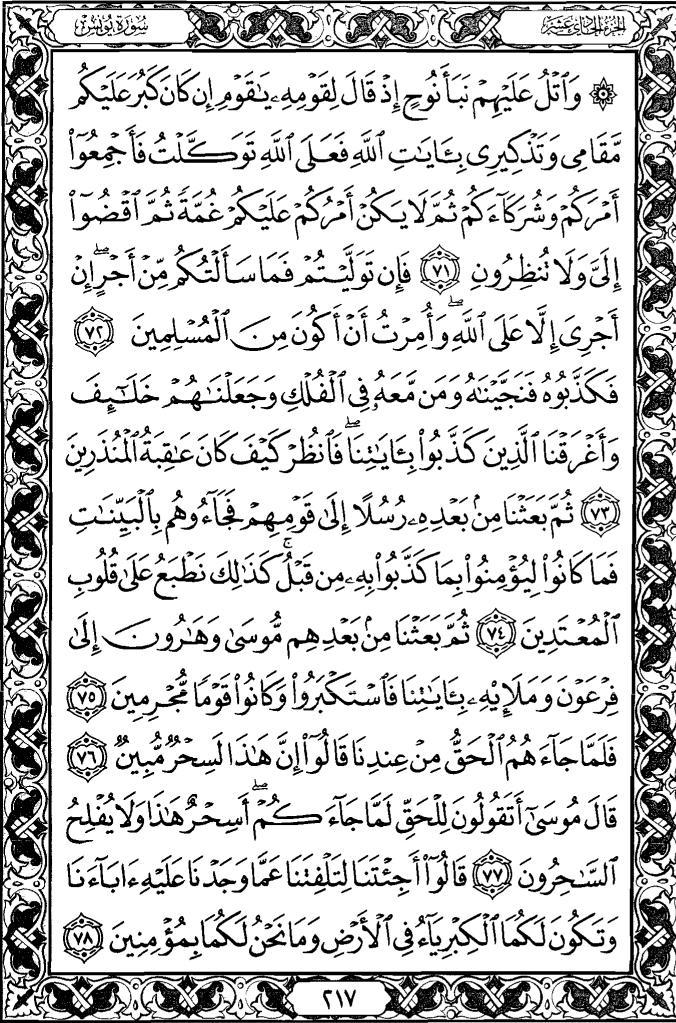 الجزء الحادي عشر
سورة يونس
۞ وَٱتۡلُ عَلَيۡهِمۡ نَبَأَ نُوحٍ إِذۡ قَالَ لِقَوۡمِهِۦ يَٰقَوۡمِ إِن كَانَ كَبُرَ عَلَيۡكُم
مَّقَامِي وَتَذۡكِيرِي بِـَٔايَٰتِ ٱللَّهِ فَعَلَى ٱللَّهِ تَوَكَّلۡتُ فَأَجۡمِعُوٓاْ
أَمۡرَكُمۡ وَشُرَكَآءَكُمۡ ثُمَّ لَا يَكُنۡ أَمۡرُكُمۡ عَلَيۡكُمۡ غُمَّةٗ ثُمَّ ٱقۡضُوٓاْ
إِلَيَّ وَلَا تُنظِرُونِ ٧١ فَإِن تَوَلَّيۡتُمۡ فَمَا سَأَلۡتُكُم مِّنۡ أَجۡرٍۖ إِنۡ
أَجۡرِيَ إِلَّا عَلَى ٱللَّهِۖ وَأُمِرۡتُ أَنۡ أَكُونَ مِنَ ٱلۡمُسۡلِمِينَ ٧٢
فَكَذَّبُوهُ فَنَجَّيۡنَٰهُ وَمَن مَّعَهُۥ فِي ٱلۡفُلۡكِ وَجَعَلۡنَٰهُمۡ خَلَٰٓئِفَ
وَأَغۡرَقۡنَا ٱلَّذِينَ كَذَّبُواْ بِـَٔايَٰتِنَاۖ فَٱنظُرۡ كَيۡفَ كَانَ عَٰقِبَةُ ٱلۡمُنذَرِينَ
٧٣ ثُمَّ بَعَثۡنَا مِنۢ بَعۡدِهِۦ رُسُلًا إِلَىٰ قَوۡمِهِمۡ فَجَآءُوهُم بِٱلۡبَيِّنَٰتِ
فَمَا كَانُواْ لِيُؤۡمِنُواْ بِمَا كَذَّبُواْ بِهِۦ مِن قَبۡلُۚ كَذَٰلِكَ نَطۡبَعُ عَلَىٰ قُلُوبِ
ٱلۡمُعۡتَدِينَ ٧٤ ثُمَّ بَعَثۡنَا مِنۢ بَعۡدِهِم مُّوسَىٰ وَهَٰرُونَ إِلَىٰ
فِرۡعَوۡنَ وَمَلَإِيْهِۦ بِـَٔايَٰتِنَا فَٱسۡتَكۡبَرُواْ وَكَانُواْ قَوۡمٗا مُّجۡرِمِينَ ٧٥
فَلَمَّا جَآءَهُمُ ٱلۡحَقُّ مِنۡ عِندِنَا قَالُوٓاْ إِنَّ هَٰذَا لَسِحۡرٞ مُّبِينٞ ٧٦
قَالَ مُوسَىٰٓ أَتَقُولُونَ لِلۡحَقِّ لَمَّا جَآءَكُمۡۖ أَسِحۡرٌ هَٰذَا وَلَا يُفۡلِحُ
ٱلسَّٰحِرُونَ ٧٧ قَالُوٓاْ أَجِئۡتَنَا لِتَلۡفِتَنَا عَمَّا وَجَدۡنَا عَلَيۡهِ ءَابَآءَنَا
وَتَكُونَ لَكُمَا ٱلۡكِبۡرِيَآءُ فِي ٱلۡأَرۡضِ وَمَا نَحۡنُ لَكُمَا بِمُؤۡمِنِينَ ٧٨
٢١٧